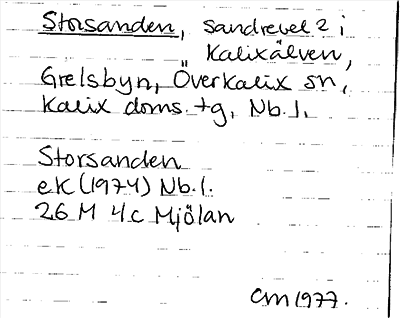 Storsanden, sandrevel 2 i
Kalixälven,
Grelsbyn, Överkalix sn,
Kalix doms. tg, Nb.l.
Storsanden
eK (1974) Nb.l.
26 M 4c Mjölan
CM 1977.